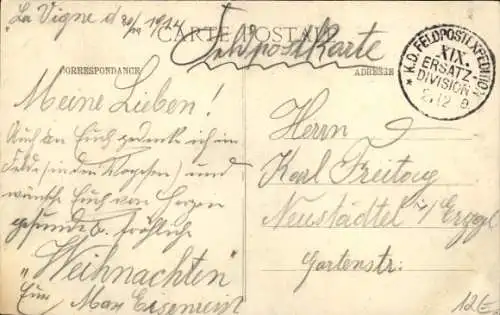 "La Vigne d 20/12 1914
CARTE POSTALE
Feldpostkarte
CORRESPONDANCE
ADRESSE
* K.D. FELDPOSTEXPEDITION *
XIX.
ERSATZ-
DIVISION
Meine Lieben!
Auch an Euch gedenke ich im
Felde (in den Vogesen) und
wünsche Euch von Herzen
gesunde u. fröhliche
"Weihnachten"
Euer Max
Herrn
Karl Freitag
Neustädtel i/ Erzgb
Gartenstr:
12E